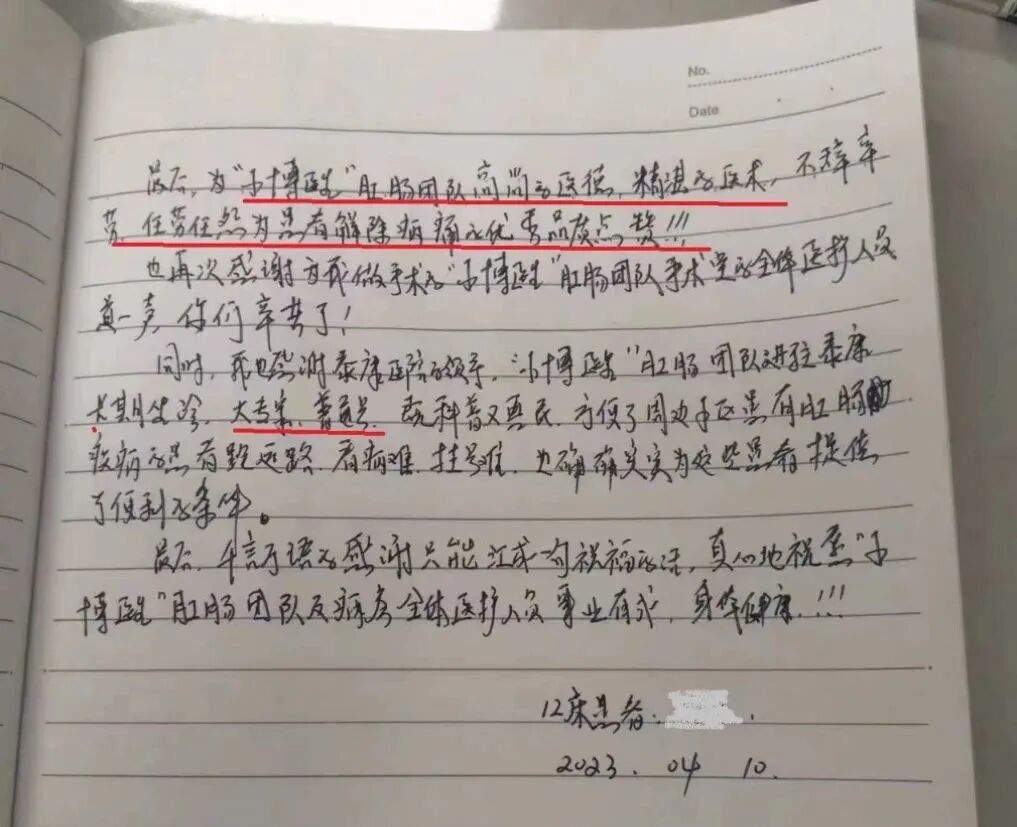 No.
Date
最后,为“小博医生”肛肠团队高尚的医德,精湛的医术,不辞辛
劳,任劳任怨为患者解除病痛的优秀品质点赞!!!
也再次感谢为我做手术的“小博医生”肛肠团队手术室的全体医护人员
道一声,你们辛苦了!
同时,我也感谢泰康医院的领导,“小博医生”肛肠团队进驻泰康
长期坐诊,大专家,普通号,既科普又惠民,方便了周边市区患有肛肠
疾病的患者跑远路,看病难,挂号难,也确确实实为这些患者提供
了便利的条件。
最后,千言万语的感谢只能汇成一句祝福的话,真心地祝愿“小
博医生”肛肠团队及病房全体医护人员事业有成,身体健康!!!
12床患者:
2023.04 10.